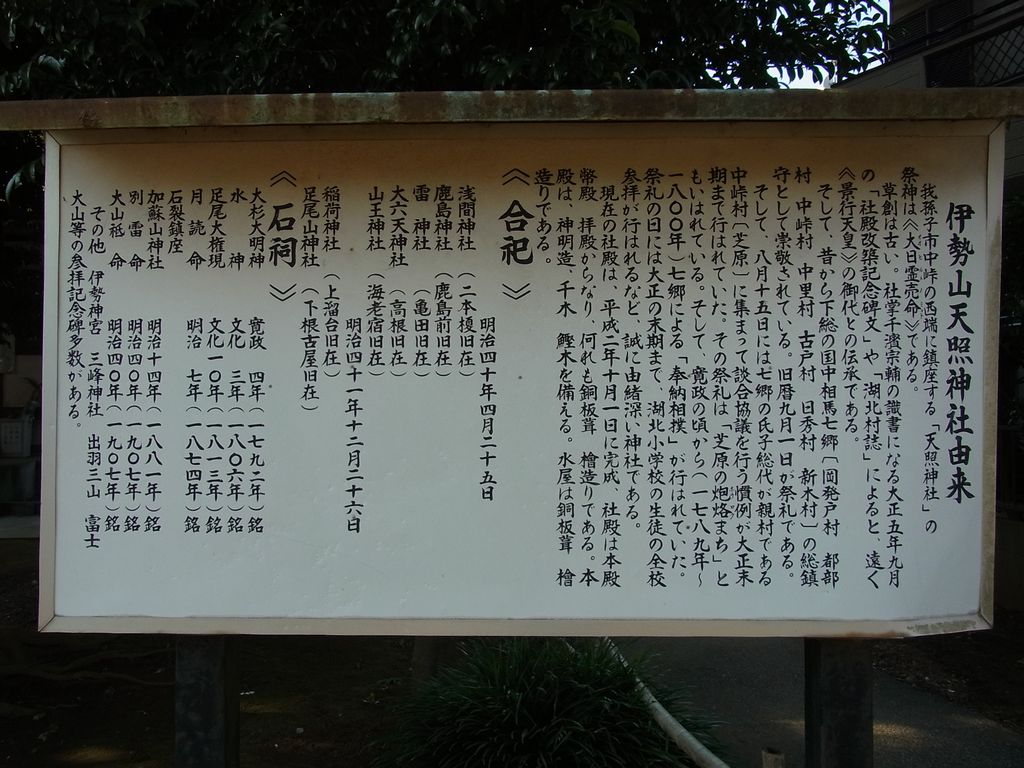 伊勢山天照神社由来
我孫子市中峠の西端に鎮座する「天照神社」の
祭神は《大日霊売命》である。
草創は古い。社掌千濱宗輔の識書になる大正五年九月
の「社殿改築記念碑文」や「湖北村誌」によると、遠く
《景行天皇》の御代との伝承である。
そして、昔から下総の国中相馬七郷〔岡発戸村 都部
村 中峠村 中里村 古戸村 日秀村 新木村〕の総鎮
守として崇敬されている。旧暦九月一日が祭礼である。
そして、八月十五日には七郷の氏子総代が親村である
中峠村〔芝原〕に集まって談合協議を行う慣例が大正末
期まで行はれていた。その祭礼は「芝原の炮烙まち」と
もいはれている。そして、寛政の頃から(一七八九年~
一八〇〇年)七郷による「奉納相撲」が行はれていた。
祭礼の日には大正の末期まで、湖北小学校の生徒の全校
参拝が行はれるなど、誠に由緒深い神社である。
現在の社殿は、平成二年十月一日に完成、社殿は本殿
幣殿 拝殿からなり、何れも銅板葺 檜造りである。本
殿は、神明造、千木 鰹木を備える。水屋は銅板葺 檜
造りである。
《合祀》
明治四十年四月二十五日
浅間神社 (二本榎旧在)
鹿島神社 (鹿島前旧在)
雷 神社 (亀田旧在)
大六天神社 (高根旧在)
山王神社 (海老宿旧在)
明治四十一年十二月二十六日
稲荷神社 (上溜台旧在)
足尾山神社 (下根古屋旧在)
《石祠》
大杉大明神 寛政 四年(一七九二年)銘
水 神 文化 三年(一八〇六年)銘
足尾大権現 文化一〇年(一八一三年)銘
月 読 命 明治 七年(一八七四年)銘
石裂鎮座
加蘇山神社 明治十四年(一八八一年)銘
別 雷 命 明治四〇年(一九〇七年)銘
大山祇 命 明治四〇年(一九〇七年)銘
その他 伊勢神宮 三峰神社 出羽三山 富士
大山等の参拝記念碑多数がある。